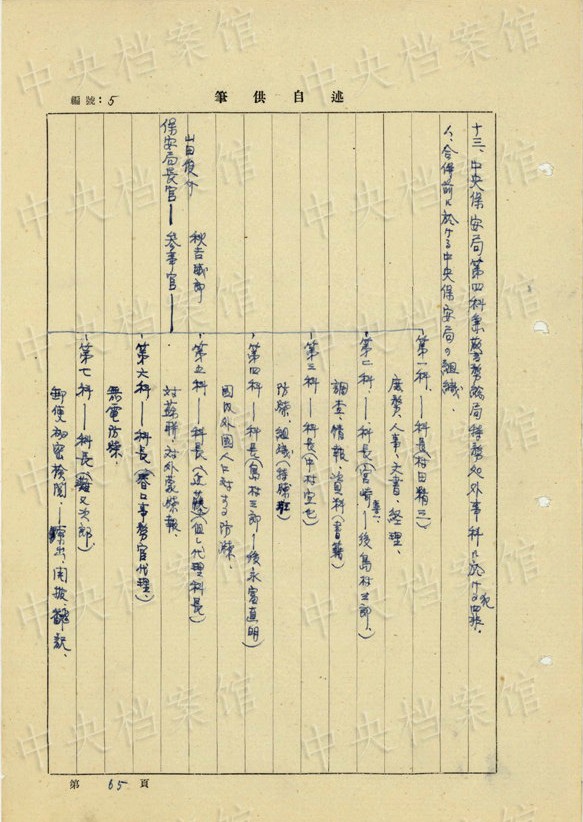 自述供筆
編號：5
十三、中央保安局第四科兼警務總局特務処外事科ニ於ケル犯罪。
1、合併前ニ於ケル中央保安局ノ組織、
山田俊介
保安局長官——参事官——
秋吉威郎
第一科、——科長(村田精三)
庶務、人事、文書、経理、
第二科、——科長(宮崎)——後島村三郎、
調査、情報、資料(書籍)
第三科——科長(中村
防諜、組織(特諜班
第四科——科長(島村三郎——後永富直明)
国内外國人ニ対スル防諜、
第五科——科長(近藤 但シ代理科長)
対蘇聯、対外蒙諜報、
第六科——科長(春口事務官代理)
無電防諜、
第七科——科長(又次郎)
郵便秘密検閲、——開披、
第 65 頁
中央档案馆